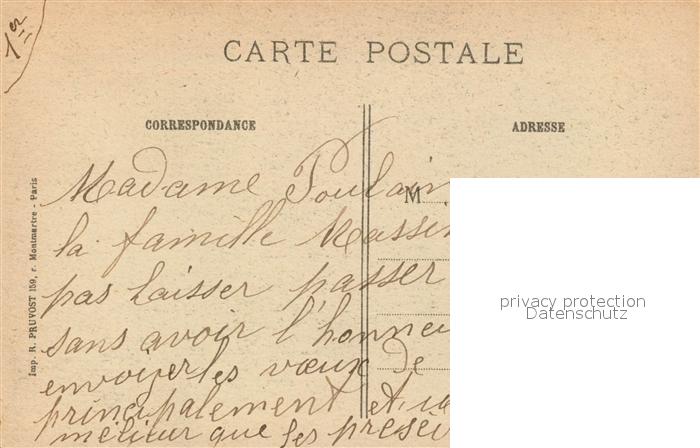 1er
CARTE POSTALE
CORRESPONDANCE
ADRESSE
Imp. R. PRUVOST 159, r. Montmartre - Paris
M
Madame Poulain
la famille
pas laisser passer
sans avoir l'honneu
envoyer les vœux de
principalement et
meilleur que les
privacy protection
Datenschutz